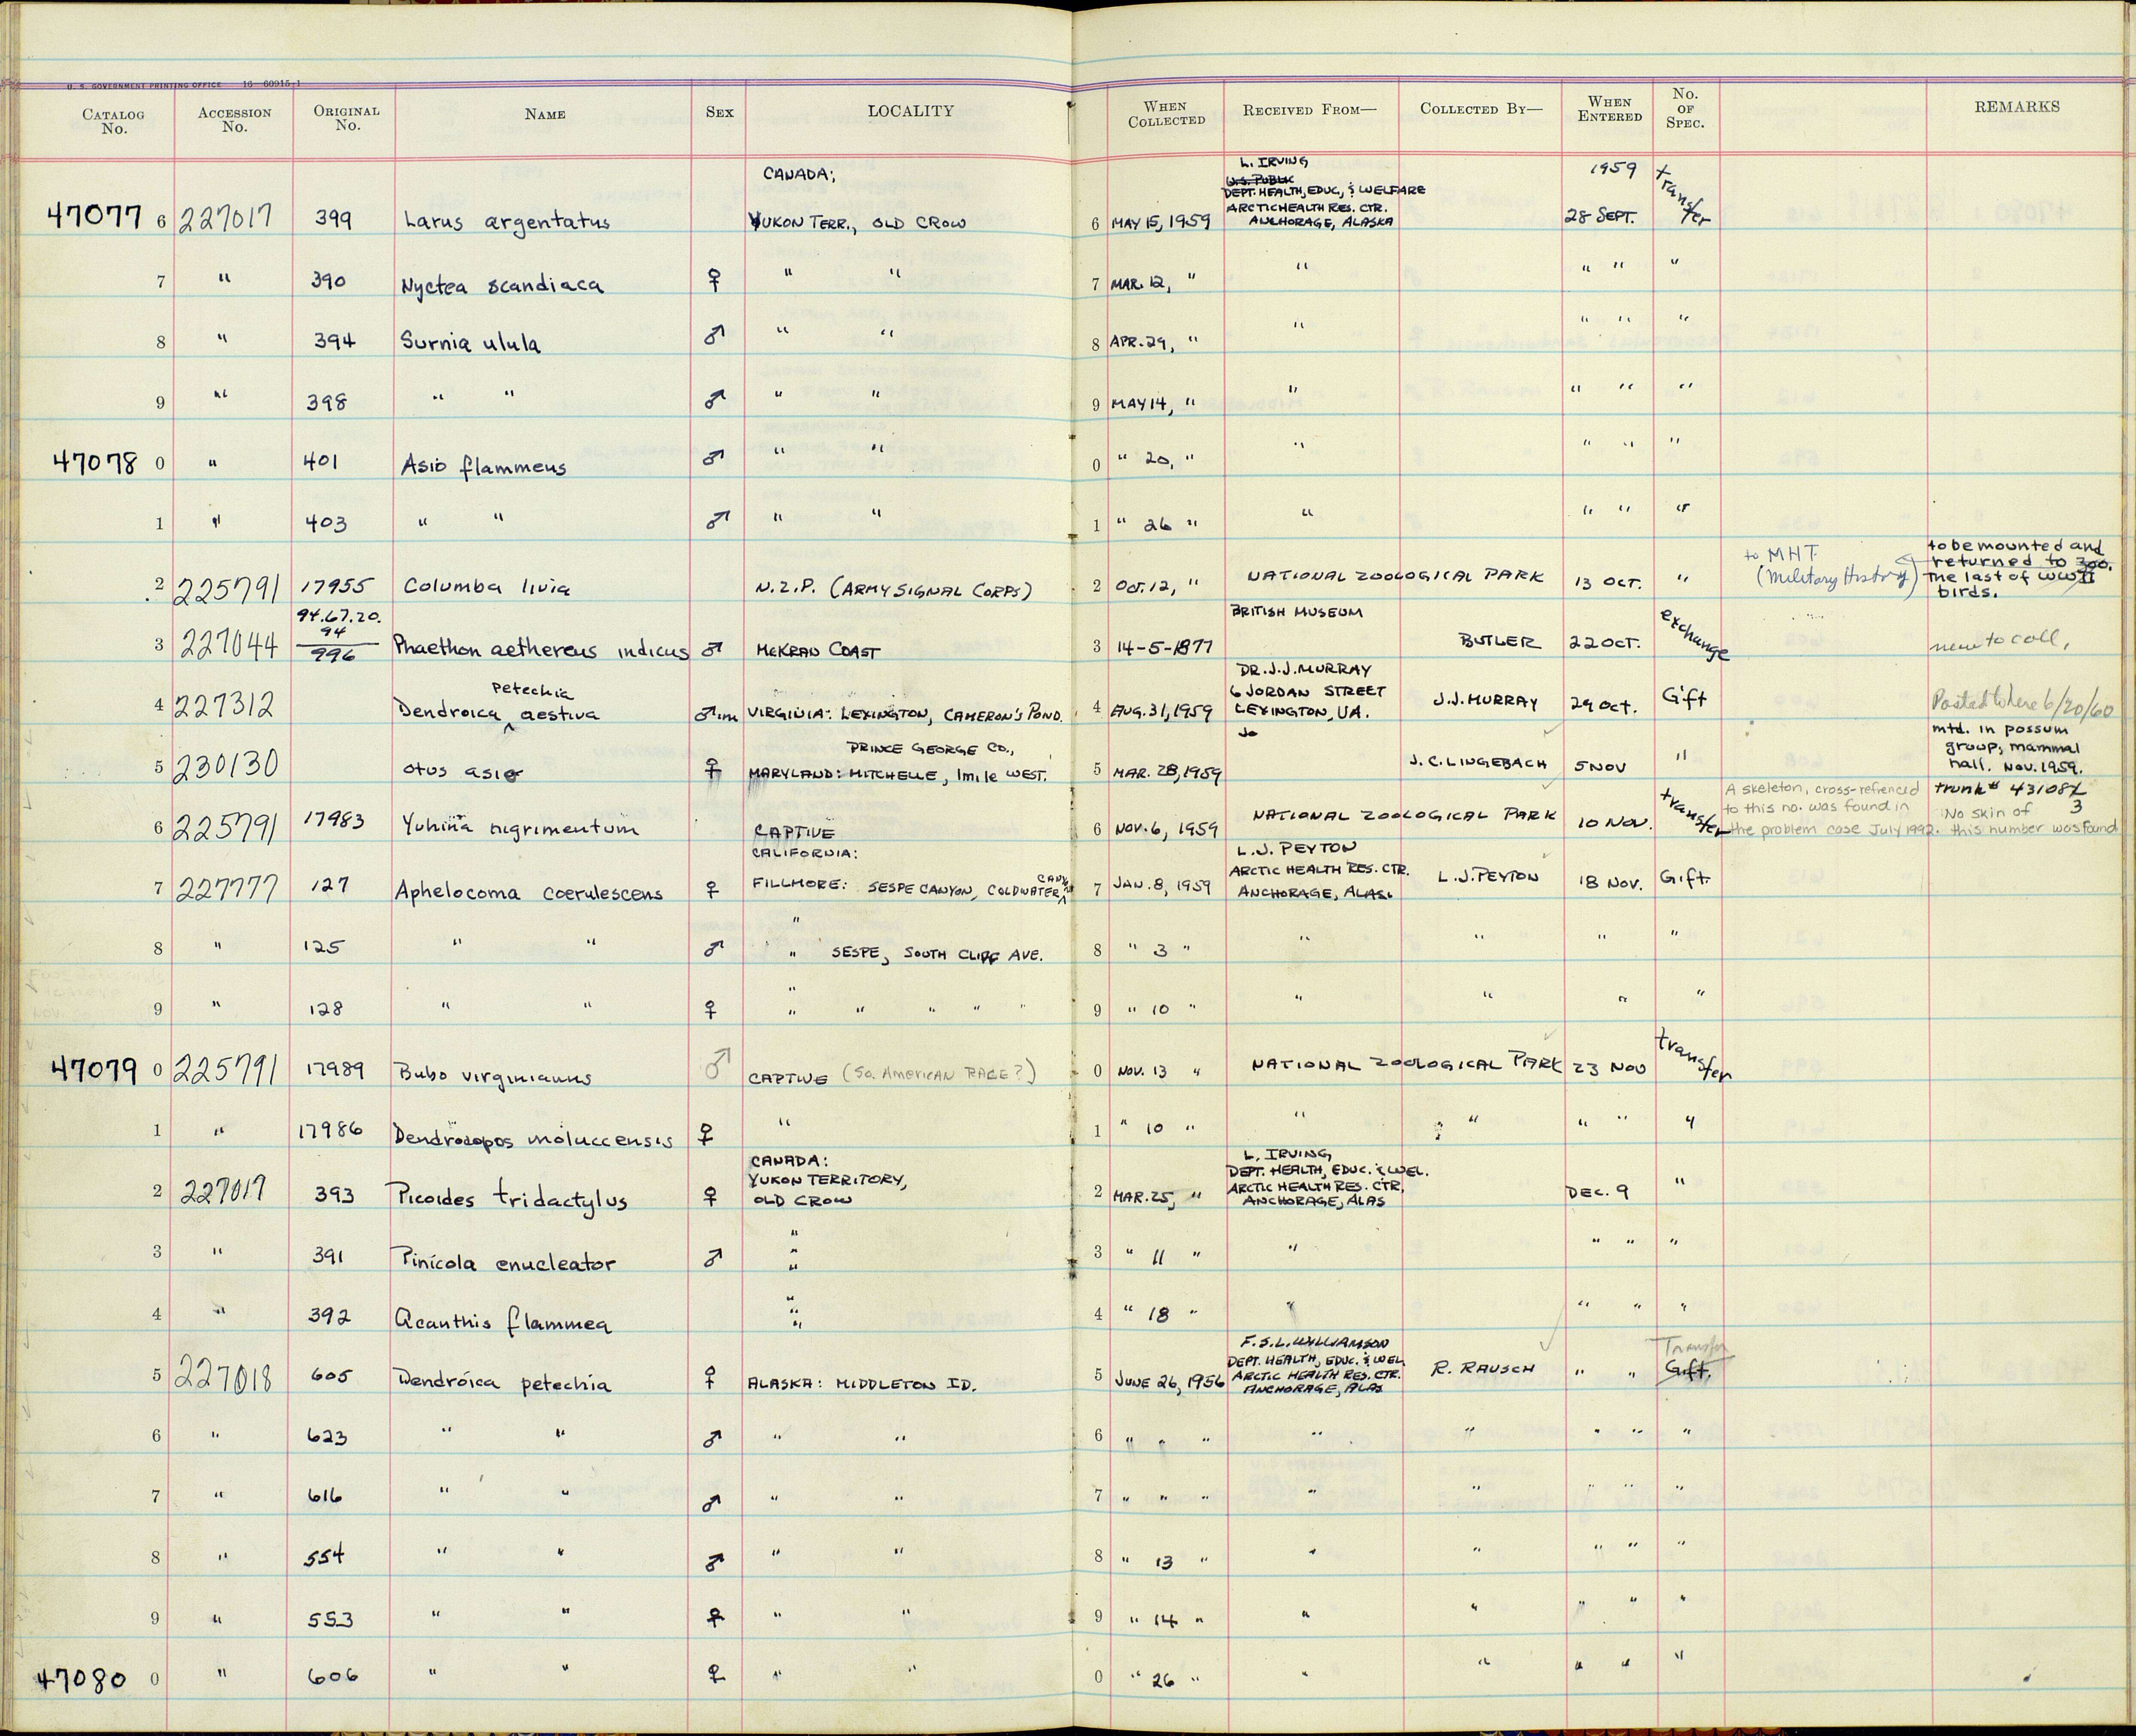 U. S. GOVERNMENT PRINTING OFFICE 16—60915-1
CATALOG No. ACCESSION No. ORIGINAL No. NAME SEX LOCALITY WHEN COLLECTED RECEIVED FROM— COLLECTED BY— WHEN ENTERED No. OF SPEC. REMARKS
CANADA; L. IRVING 1959 transfer
U.S. PUBLIC
DEPT. HEALTH, EDUC, & WELFARE
ARCTIC HEALTH RES. CTR.
47077 6 227017 399 Larus argentatus YUKON TERR., OLD CROW 6 MAY 15, 1959 ANCHORAGE, ALASKA 28 SEPT.
7 " 390 Nyctea scandiaca ♀ " " 7 MAR. 12, " " " " "
8 " 394 Surnia ulula ♂ " " 8 APR. 29, " " " " "
9 " 398 " " ♂ " " 9 MAY 14, " " " " "
47078 0 " 401 Asio flammeus ♂ " " 0 " 20, " " " " "
1 " 403 " " ♂ " " 1 " 26 " " " " "
2 225791 17955 Columba livia N.Z.P. (ARMY SIGNAL CORPS) 2 Oct. 12, " NATIONAL ZOOLOGICAL PARK 13 OCT. " to MHT (Military History) to be mounted and returned to zoo. The last of WWII birds.
94.67.20.
94
3 227044 996 Phaethon aethereus indicus ♂ MEKRAN COAST 3 14-5-1877 BRITISH MUSEUM BUTLER 22 OCT. exchange new to coll,
petechia
4 227312 Dendroica ^ aestiva ♂ im VIRGINIA: LEXINGTON, CAMERON'S POND. 4 AUG. 31, 1959 DR. J. J. MURRAY 6 JORDAN STREET LEXINGTON, VA. J. J. MURRAY 29 Oct. Gift Posted Where 6/20/60
PRINCE GEORGE CO.,
5 230130 otus asio ♀ MARYLAND: MITCHELLE, 1 mile WEST. 5 MAR. 28, 1959 J. C. LINGEBACH 5 NOV " mtd. in possum group, mammal hall. Nov. 1959.
trunk # 431087 3
6 225791 17983 Yuhina nigrimentum CAPTIVE 6 NOV. 6, 1959 NATIONAL ZOOLOGICAL PARK 10 NOV. transfer A skeleton, cross-refrenced to this no. was found in the problem case July 1992. No skin of this number was found
CALIFORNIA:
7 227777 127 Aphelocoma coerulescens ♀ FILLMORE: SESPE CANYON, COLDWATER ^ CANY 7 JAN. 8, 1959 L. J. PEYTON ARCTIC HEALTH RES. CTR. ANCHORAGE, ALAS. L. J. PEYTON 18 NOV. Gift
"
8 " 125 " " ♂ " SESPE, SOUTH CLIFF AVE. 8 " 3 " " " " "
"
9 " 128 " " ♀ " " " " " 9 " 10 " " " " "
47079 0 225791 17989 Bubo virginianus ♂ CAPTIVE (So. American RACE?) 0 NOV. 13 " NATIONAL ZOOLOGICAL PARK 23 NOV transfer
1 " 17986 Dendrocopos moluccensis ♀ " 1 " 10 " " " " " "
CANADA:
YUKON TERRITORY,
2 227017 393 Picoides tridactylus ♀ OLD CROW 2 MAR. 25, " L. IRVING, DEPT. HEALTH, EDUC. & WEL. ARCTIC HEALTH RES. CTR, ANCHORAGE, ALAS DEC. 9 "
3 " 391 Pinicola enucleator ♂ " " " 3 " 11 " " " " "
4 " 392 Acanthis flammea " " " 4 " 18 " " " " "
5 227018 605 Dendroica petechia ♀ ALASKA: MIDDLETON ID. 5 JUNE 26, 1956 F. S. L. WILLIAMSON DEPT. HEALTH, EDUC. & WEL ARCTIC HEALTH RES. CTR. ANCHORAGE, ALAS R. RAUSCH " " Transfer Gift.
6 " 623 " " ♂ " " 6 " " " " " " " "
7 " 616 " " ♂ " " 7 " " " " " " " "
8 " 554 " " ♂ " " 8 " 13 " " " " " "
9 " 553 " " ♀ " " 9 " 14 " " " " " "
47080 0 " 606 " " ♀ " " 0 " 26 " " " " " "